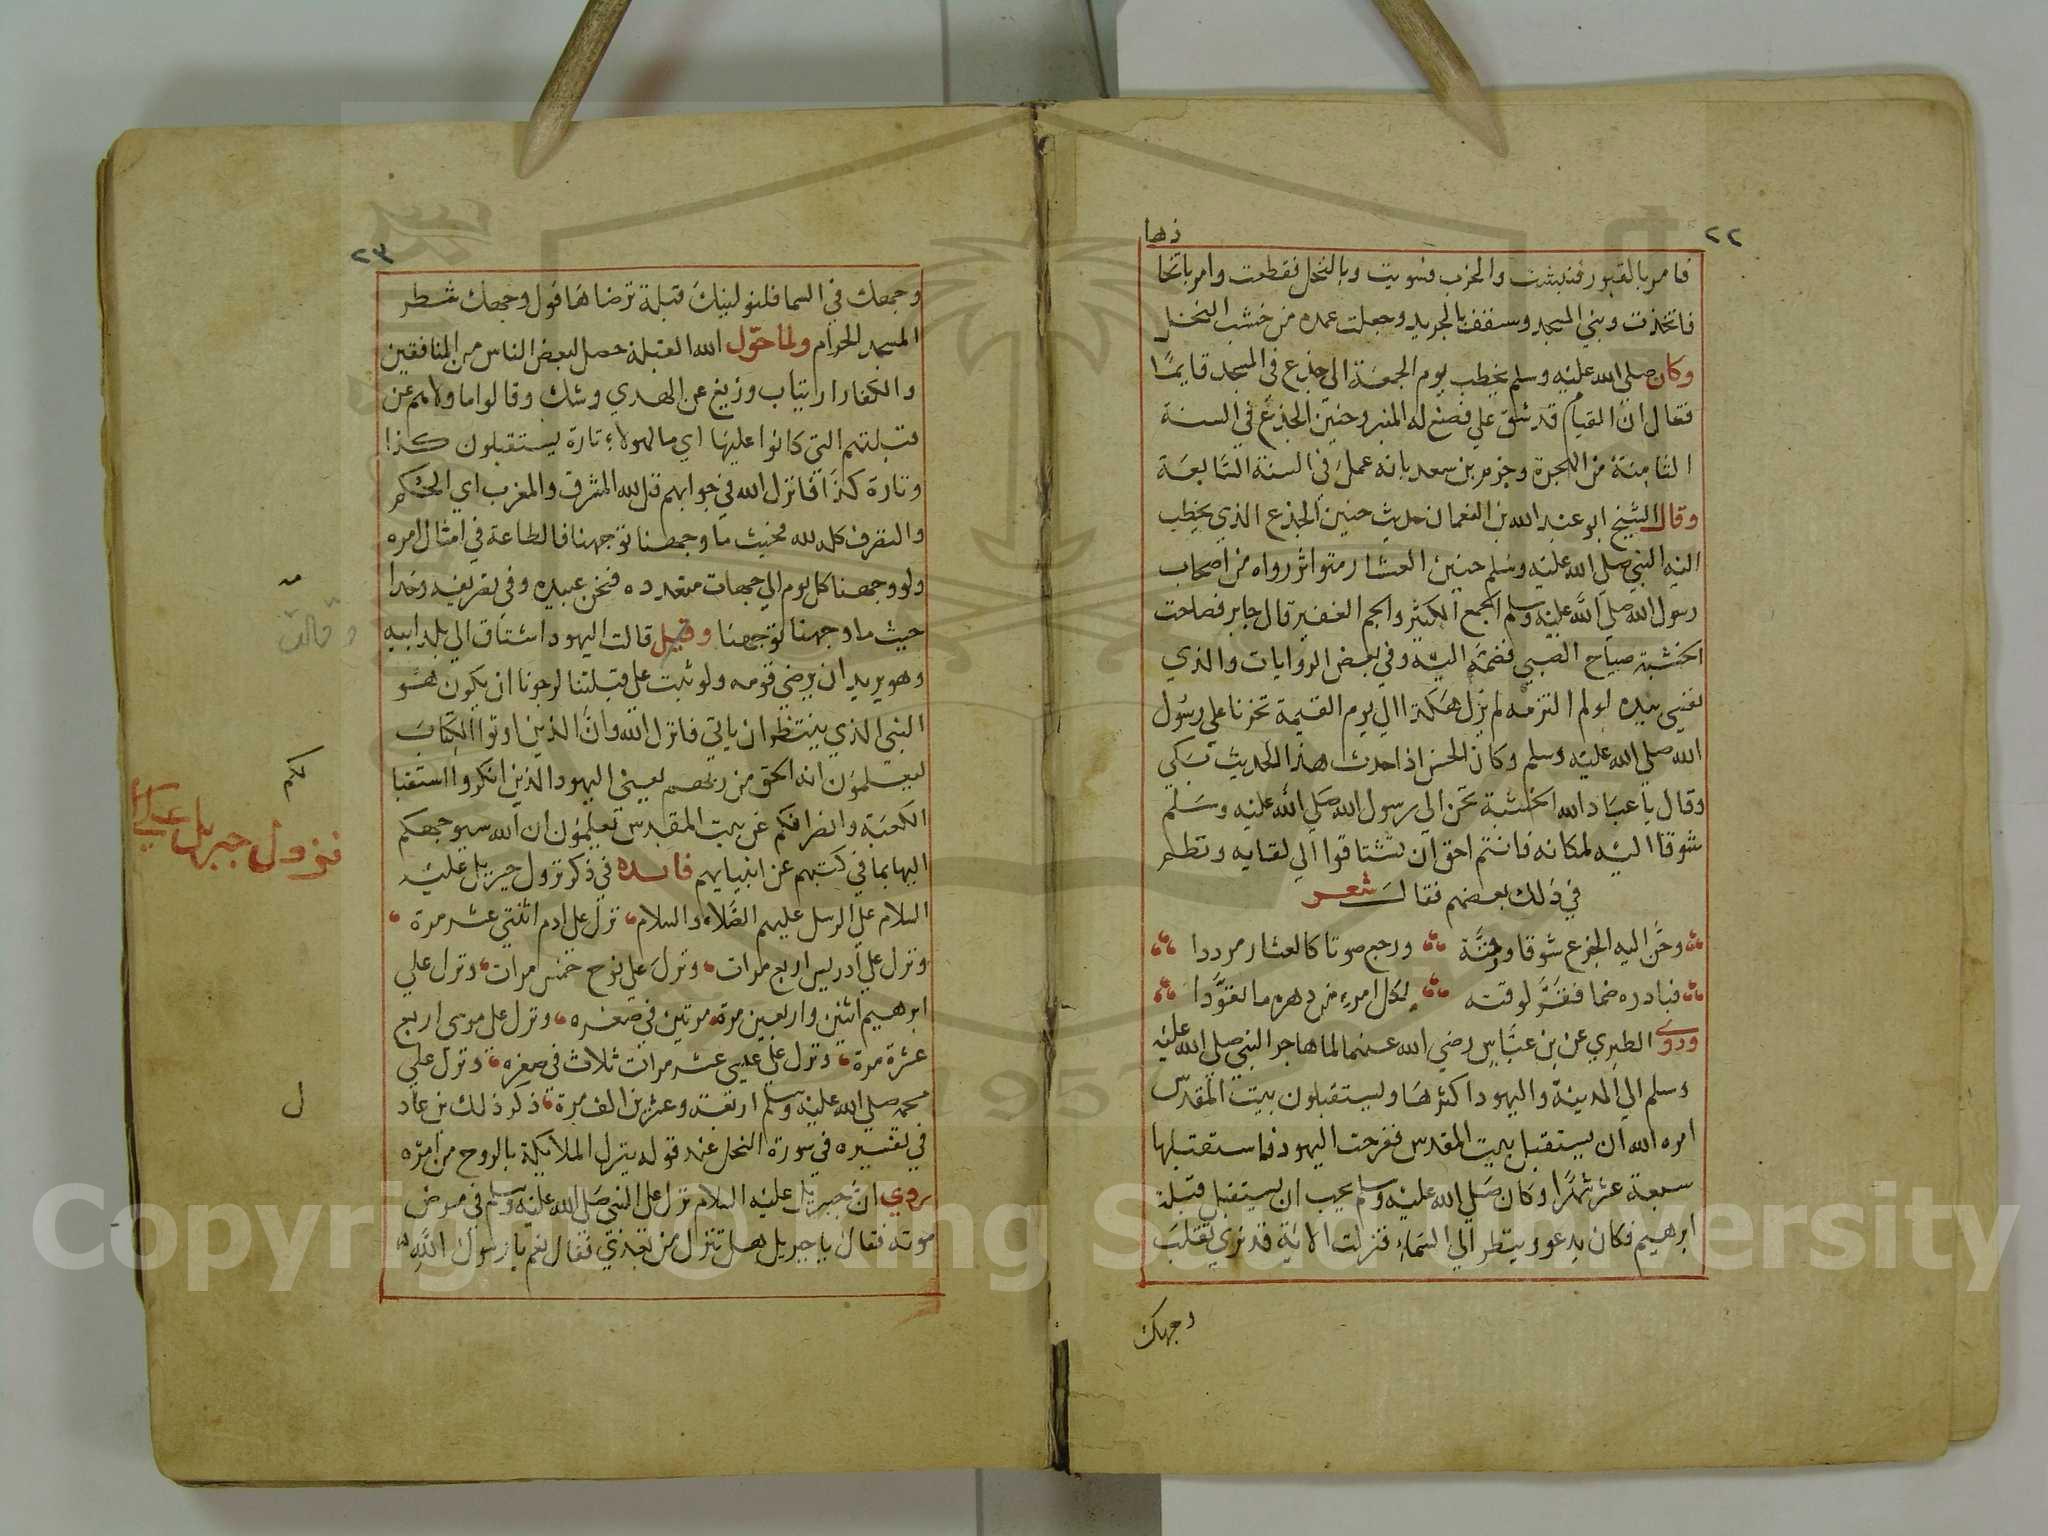 ٢٢
ذها
فامر بالقبور فنبشت والخرب فسويت وبالنخل فقطعت وامر باتخا
فاتخذت وبني المسجد وسقف بالجريد وجعلت عمده من خشب النخل
وكان صلي الله عليه وسلم يخطب يوم الجمعة الي جذع في المسجد قايمًا
فقال ان القيام قد شق علي فصنع له المنبر وحنين الجذع في السنة
الثامنة من الهجرة وجزم بن سعد بانه عمل في السنة السابعة
وقال الشيخ ابو عبد الله بن النعمان حديث حنين الجذع الذي يخطب
اليه النبي صلي الله عليه وسلم حنين العشار متواتر رواه من اصحاب
رسول الله صلي الله عليه وسلم الجمع الكثير والجم الغفير قال جابر فصاحت
الخشبة صياح الصبي فضمه اليه وفي بعض الروايات والذي
نفسي بيده لو لم التزمه لم يزل هكذا الي يوم القيمة تحزنا علي رسول
الله صلي الله عليه وسلم وكان الحسن اذا حدث هذا الحديث بكي
وقال يا عباد الله الخشبة تحن الي رسول الله صلي الله عليه وسلم
شوقا اليه لمكانه فانتم احق ان تشتاقوا الي لقايه ونظم
في ذلك بعضهم فقال شعر
وحن اليه الجذع شوقا ورقة ورجع صوتا كالعشار مرددا
فبادره ضما فقر لوقته لكل امرء من دهره ما تعودا
وروي الطبري عن بن عباس رضي الله عنهما لما هاجر النبي صلي الله عليه
وسلم الي المدينة واليهود اكثرها ويستقبلون بيت المقدس
امره الله ان يستقبل بيت المقدس ففرحت اليهود فاستقبلها
سبعة عشر شهرا وكان صلي الله عليه وسلم يحب ان يستقبل قبلة
ابرهيم فكان يدعو وينظر الي السماء فنزلت الاية قد نري تقلب
وجهك
٢٣
وجهك في السما فلنولينك قبلة ترضاها فول وجهك شطر
المسجد الحرام ولما حول الله القبلة حصل لبعض الناس من المنافقين
والكفار ارتياب وزيغ عن الهدي وشك وقالوا ما ولاهم عن
قبلتهم التي كانوا عليها اي ما لهولاء تارة يستقبلون كذا
وتارة كذا فانزل الله في جوابهم قل لله المشرق والمغرب اي الحكم
والتصرف كله لله فحيث ما وجهنا توجهنا فالطاعة في امتثال امره
ولو وجهنا كل يوم الي جهات متعدده فنحن عبيده وفي تصريفه وخدا
حيث ما وجهنا توجهنا وقيل قالت اليهود اشتاق الي بلد ابيه
وهو يريد ان يرضي قومه ولو ثبت علي قبلتنا لرجونا ان يكون هو
النبي الذي ينتظر ان ياتي فانزل الله وان الذين اوتوا الكتاب
ليعلمون انه الحق من ربهم يعني اليهود الذين انكروا استقبا
الكعبة وانصرافكم عن بيت المقدس يعلمون ان الله سيوجهكم
اليها بما في كتبهم عن انبيايهم فايده في ذكر نزول جبريل عليه
السلام علي الرسل عليهم الصلاة والسلام نزل علي ادم اثنتي عشر مرة
ونزل علي ادريس اربع مرات ونزل علي نوح خمس مرات ونزل علي
ابرهيم اثنين واربعين مرة مرتين في صغره ونزل علي موسي اربع
عشرة مرة ونزل علي عيسي عشر مرات ثلاث في صغره ونزل علي
محمد صلي الله عليه وسلم اربعة وعشرين الف مرة ذكر ذلك بن عاد
في تفسيره في سورة النحل عند قوله ينزل الملايكة بالروح من امره
روي ان جبريل عليه السلام نزل علي النبي صلي الله عليه وسلم في مرض
موته فقال يا جبريل هل تنزل من بعدي فقال نعم يا رسول الله
وقالت
لكم
نزول جبريل علي
ل
1957
Copyright © King Saud University